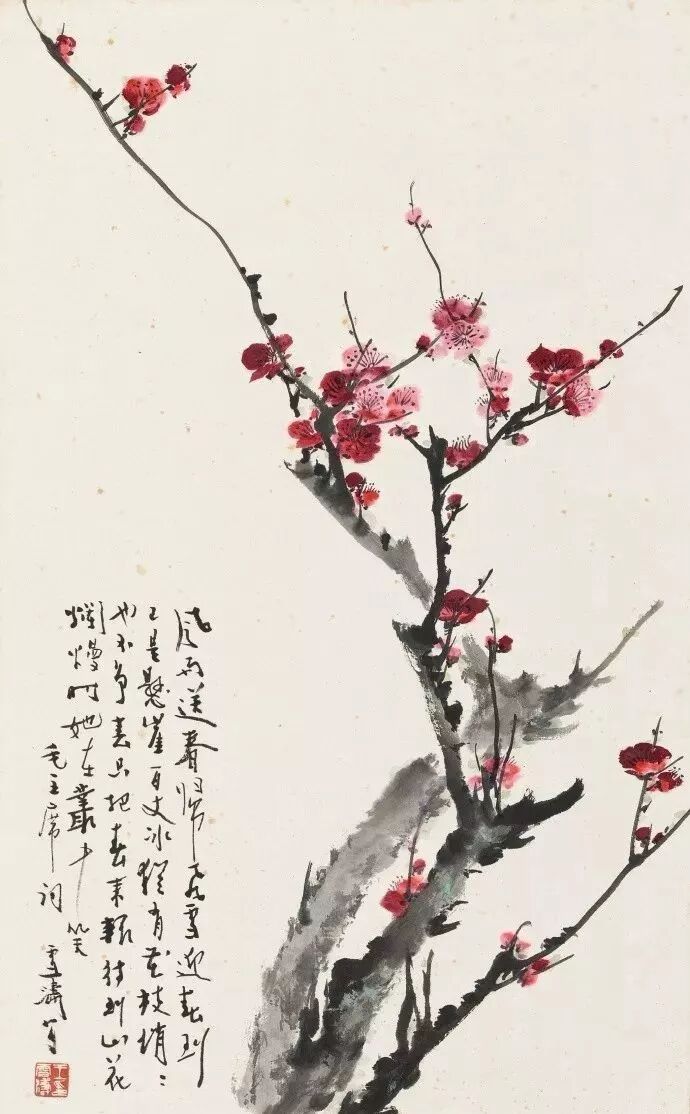 風雨送春歸飛雪迎春到
已是懸崖百丈冰猶有花枝俏〻
也不爭春只把春來報待到山花
爛熳時她在叢中笑
毛主席詞 雪濤寫
王印雪濤